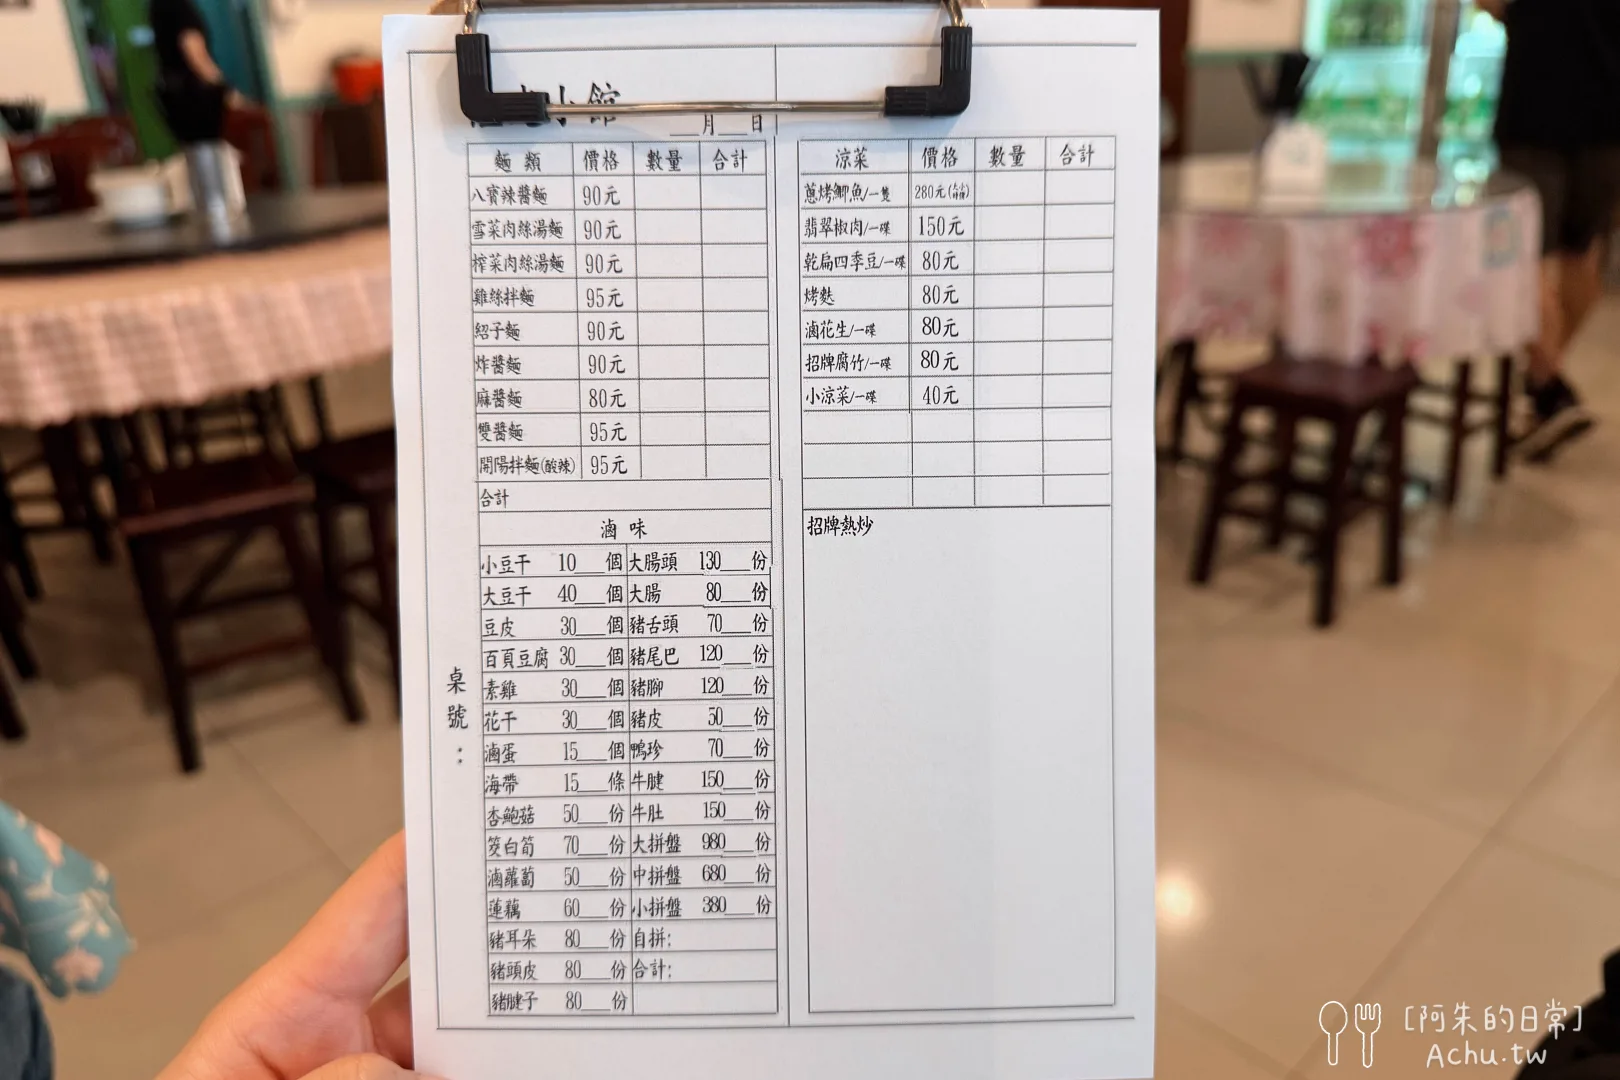 小館
__月__日
麵類 價格 數量 合計
八寶辣醬麵 90元
雪菜肉絲湯麵 90元
榨菜肉絲湯麵 90元
雞絲拌麵 95元
紹子麵 90元
炸醬麵 90元
麻醬麵 80元
雙醬麵 95元
開陽拌麵(酸辣) 95元
合計
滷味
小豆干 10___個 大腸頭 130___份
大豆干 40___個 大腸 80___份
豆皮 30___個 豬舌頭 70___份
百頁豆腐 30___個 豬尾巴 120___份
素雞 30___個 豬腳 120___份
花干 30___個 豬皮 50___份
滷蛋 15___個 鴨珍 70___份
海帶 15___條 牛腱 150___份
杏鮑菇 50___份 牛肚 150___份
筊白筍 70___份 大拼盤 980___份
滷蘿蔔 50___份 中拼盤 680___份
蓮藕 60___份 小拼盤 380___份
豬耳朵 80___份 自拼:
豬頭皮 80___份 合計:
豬腱子 80___份
桌號:
涼菜 價格 數量 合計
蔥烤鯽魚/一隻 280元
翡翠椒肉/一碟 150元
乾扁四季豆/一碟 80元
烤麩 80元
滷花生/一碟 80元
招牌腐竹/一碟 80元
小涼菜/一碟 40元
招牌熱炒
[阿朱的日常]
Achu.tw